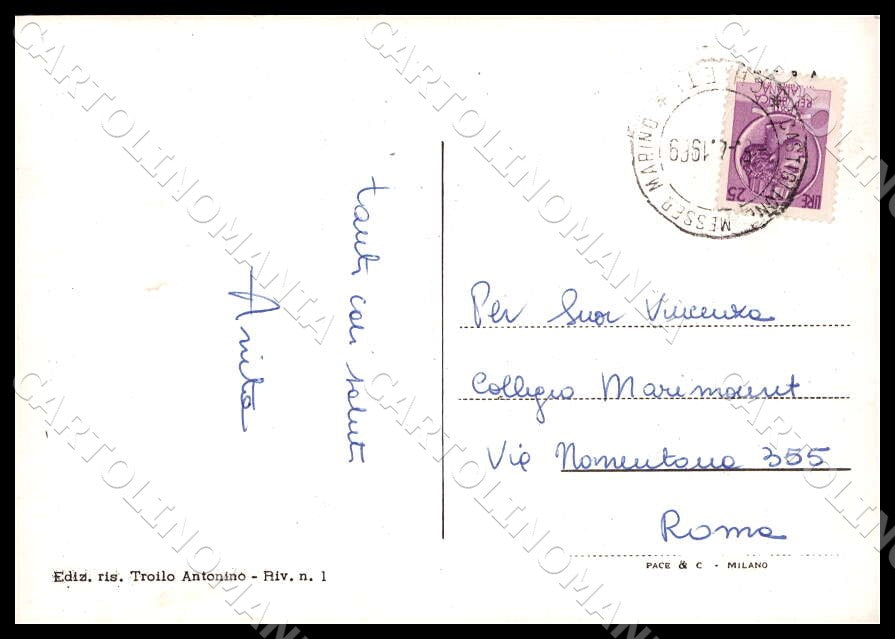 tanti cari saluti
Anita
Per Suor Vincenza
Collegio Marimount
Via Nomentana 355
Roma
Ediz. ris. Troilo Antonino - Riv. n. 1
PACE & C - MILANO
LIRE 25
REPUBBLICA
ITALIANA
MESSER MARINO
4.1969
CARTOLINOMANIA
CARTOLINOMANIA
CARTOLINOMANIA
CARTOLINOMANIA
CARTOLINOMANIA
CARTOLINOMANIA